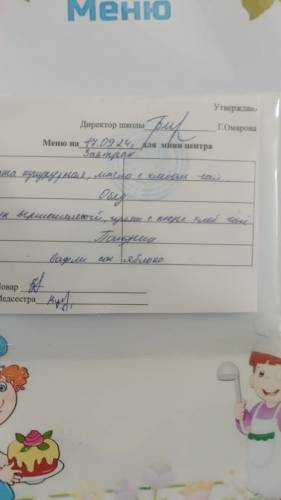 Меню
Утверждаю
Директор школы Г.Омарова
Меню на 17.09.24г. для мини центра
Завтрак
кукурузная, масло с хлебом чай
Обед
вермишелевой, с пюре хлеб чай
Полдник
вафли сок яблоко
Повар
Медсестра